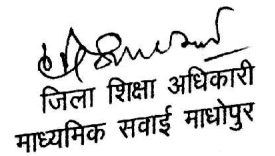 जिला शिक्षा अधिकारी
माध्यमिक सवाई माधोपुर